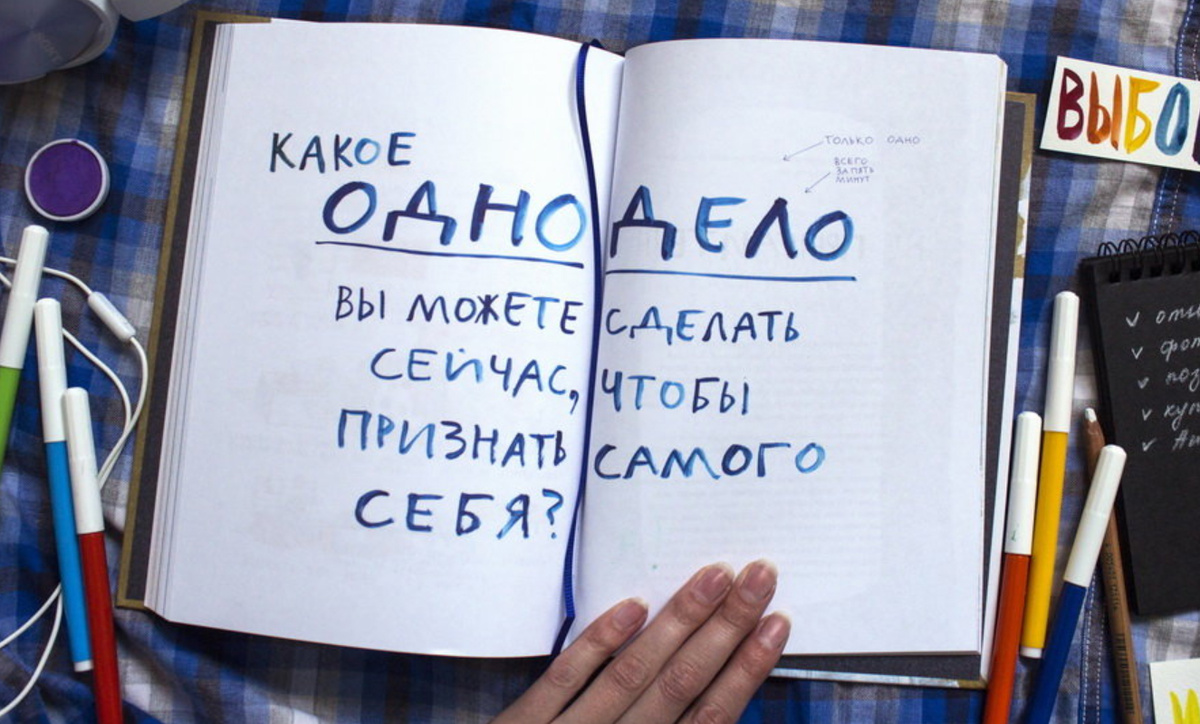 КАКОЕ
ТОЛЬКО ОДНО
ВСЕГО
ЗА ПЯТЬ
МИНУТ
ОДНО ДЕЛО
ВЫ МОЖЕТЕ СДЕЛАТЬ
СЕЙЧАС, ЧТОБЫ
ПРИЗНАТЬ САМОГО
СЕБЯ?
ВЫБО